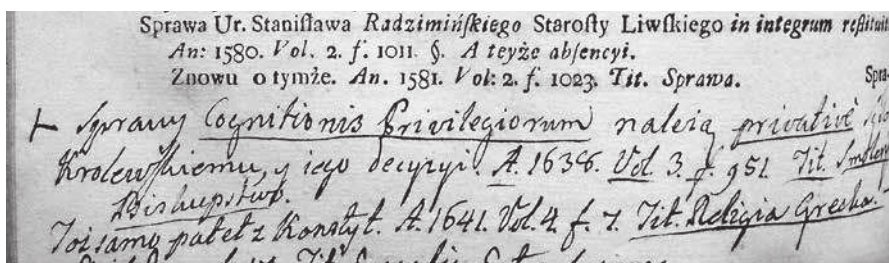 Sprawa Ur. Stanisława Radzimińskiego Starosty Liwskiego in integrum restituit
An: 1580. Vol. 2. f. 1011. §. A teyże absencyi.
Znowu o tymże. An. 1581. Vol: 2. f. 1023. Tit. Sprawa.
Spra-
+ Sprawy Cognitionis Privilegiorum należą privativè
Krolewskiemu, y iego decyzyi. A. 1638. Vol. 3. f. 951. Tit. Smolen
Biskupstwo.
Toż samo patet z Konstyt. A. 1641. Vol. 4. f. 7. Tit. Religia Grecka.